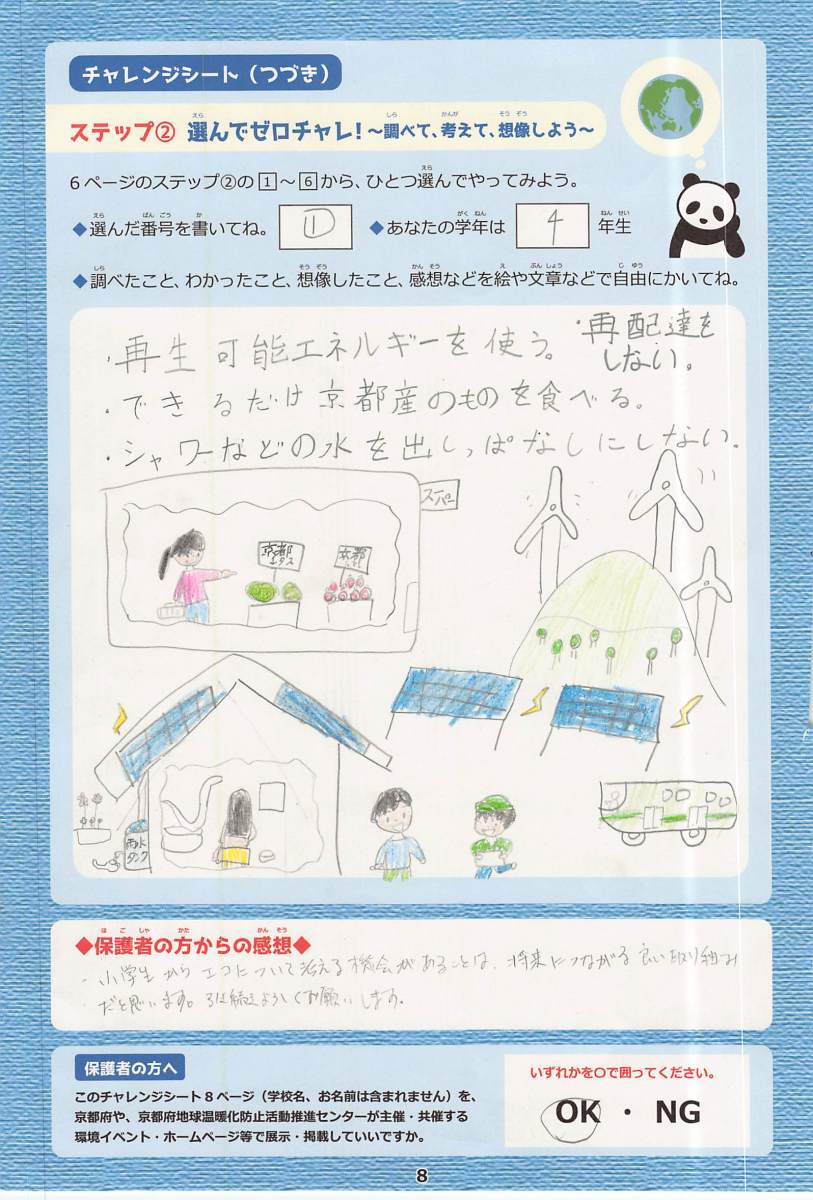 チャレンジシート（つづき）
ステップ② 選んでゼロチャレ！～調べて、考えて、想像しよう～
6ページのステップ②の1～6から、ひとつ選んでやってみよう。
◆選んだ番号を書いてね。 ① ◆あなたの学年は 4 年生
◆調べたこと、わかったこと、想像したこと、感想などを絵や文章などで自由にかいてね。
・再生可能エネルギーを使う。
・再配達をしない。
・できるだけ京都産のものを食べる。
・シャワーなどの水を出しっぱなしにしない。
スーパー
京都
レタス
京都
雨水
タンク
◆保護者の方からの感想◆
・小学生からエコについて考える機会があることは、将来につながる良い取り組み
だと思います。引き続きよろしくお願いします。
保護者の方へ
このチャレンジシート8ページ（学校名、お名前は含まれません）を、
京都府や、京都府地球温暖化防止活動推進センターが主催・共催する
環境イベント・ホームページ等で展示・掲載していいですか。
いずれかを〇で囲ってください。
OK ・ NG
8